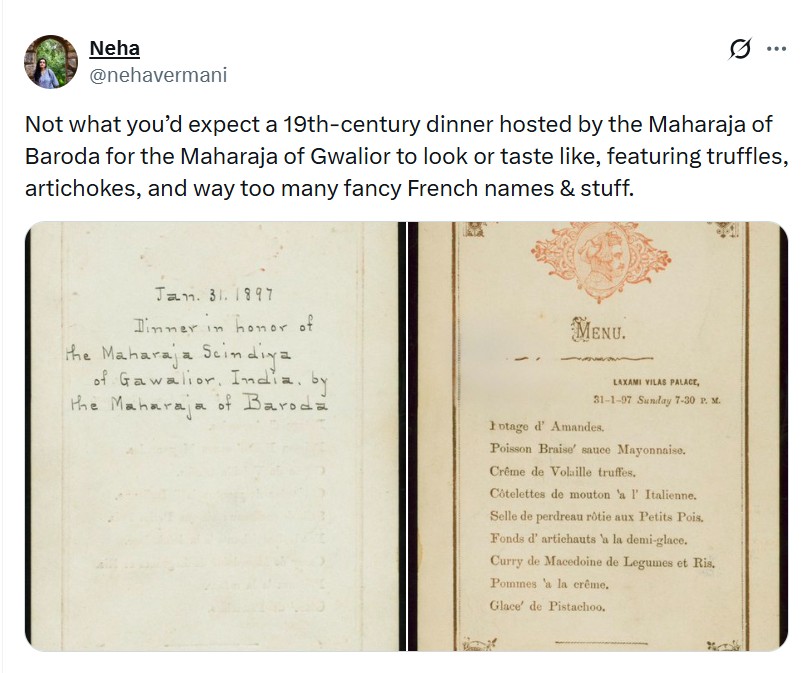 Neha
@nehavermani
Not what you’d expect a 19th-century dinner hosted by the Maharaja of
Baroda for the Maharaja of Gwalior to look or taste like, featuring truffles,
artichokes, and way too many fancy French names & stuff.
Jan. 31. 1897
Dinner in honor of
the Maharaja Scindiya
of Gawalior, India. by
the Maharaja of Baroda
MENU.
LAXAMI VILAS PALACE,
31-1-97 Sunday 7-30 P. M.
Potage d' Amandes.
Poisson Braise' sauce Mayonnaise.
Crême de Volaille truffes.
Côtelettes de mouton 'a l' Italienne.
Selle de perdreau rôtie aux Petits Pois.
Fonds d' artichauts 'a la demi-glace.
Curry de Macedoine de Legumes et Ris.
Pommes 'a la crême.
Glace' de Pistachoo.